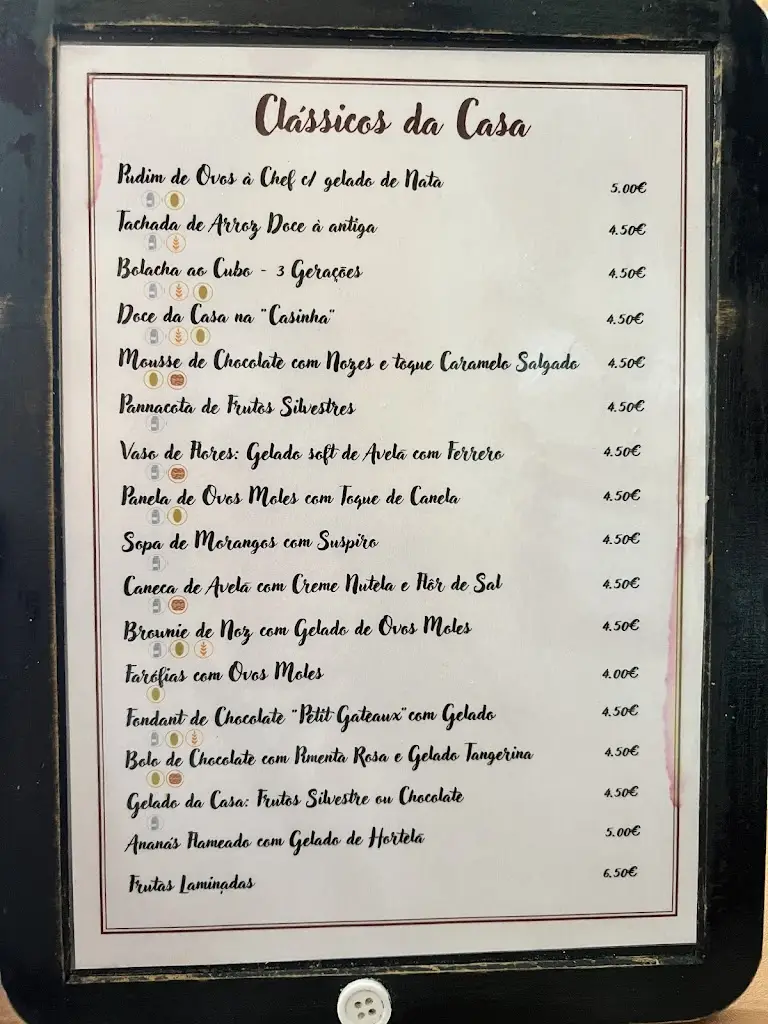 Clássicos da Casa
Pudim de Ovos à Chef c/ gelado de Nata 5.00€
Tachada de Arroz Doce à antiga 4.50€
Bolacha ao Cubo - 3 Gerações 4.50€
Doce da Casa na "Casinha" 4.50€
Mousse de Chocolate com Nozes e toque Caramelo Salgado 4.50€
Pannacota de Frutos Silvestres 4.50€
Vaso de Flores: Gelado soft de Avelã com Ferrero 4.50€
Panela de Ovos Moles com Toque de Canela 4.50€
Sopa de Morangos com Suspiro 4.50€
Caneca de Avelã com Creme Nutela e Flôr de Sal 4.50€
Brownie de Noz com Gelado de Ovos Moles 4.50€
Farófias com Ovos Moles 4.00€
Fondant de Chocolate "Petit Gateaux" com Gelado 4.50€
Bolo de Chocolate com Pimenta Rosa e Gelado Tangerina 4.50€
Gelado da Casa: Frutos Silvestre ou Chocolate 4.50€
Ananás Flameado com Gelado de Hortelã 5.00€
Frutas Laminadas 6.50€